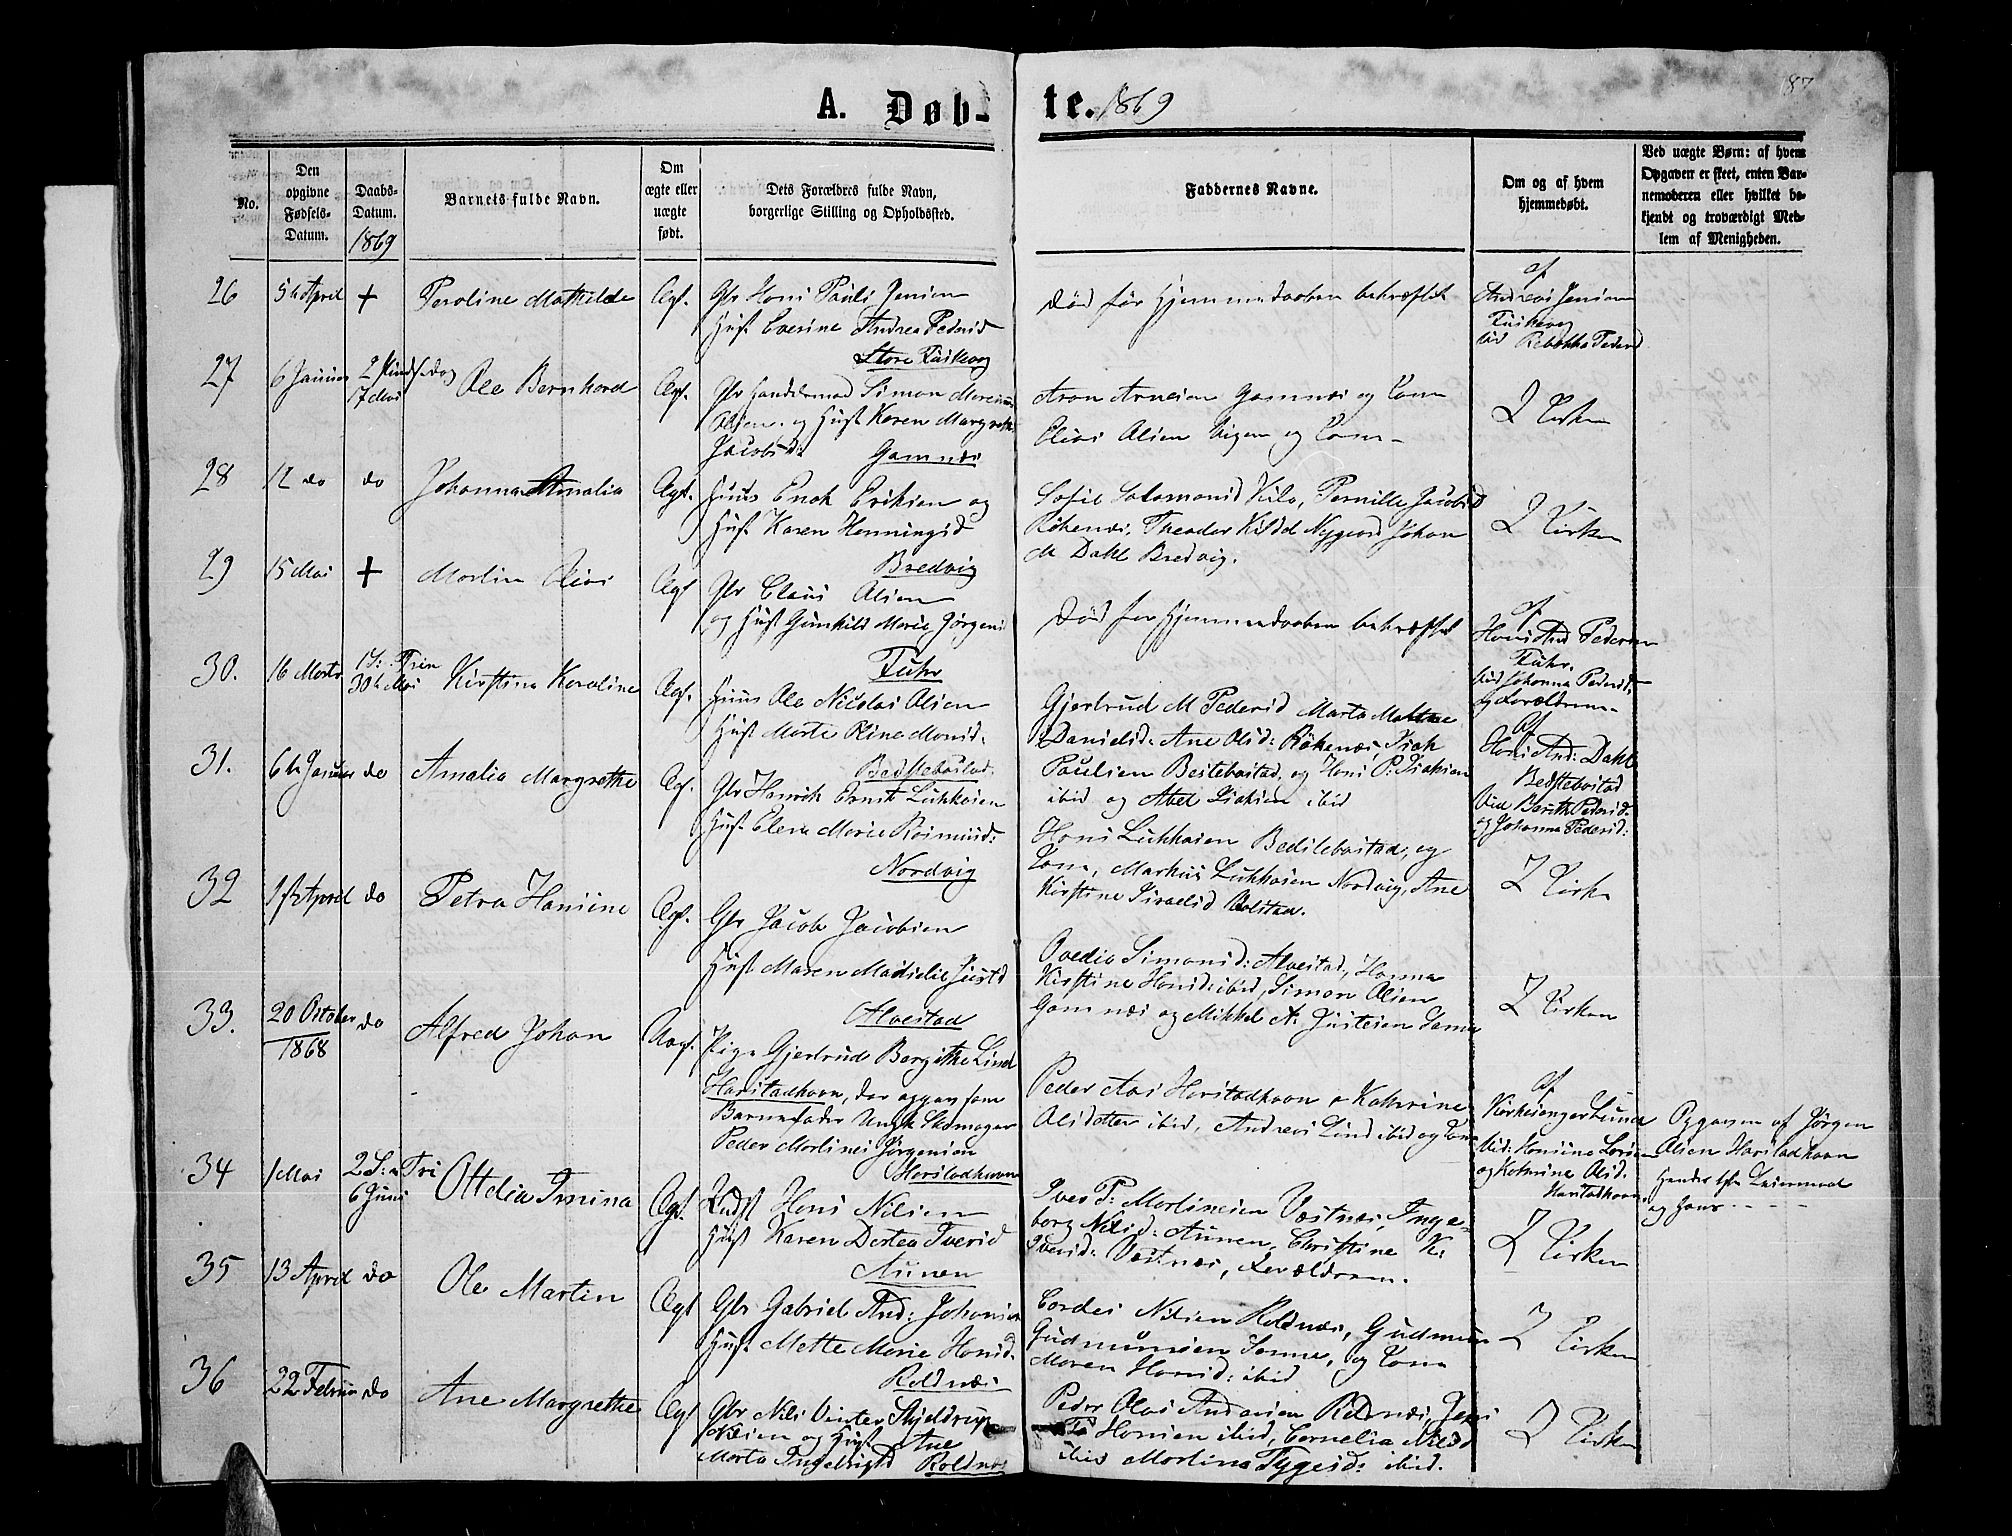 187
A. Døb- te. 1869
No.
Den opgivne Fødsels-Datum.
Daabs-Datum. 1869
Barnets fulde Navn.
Om ægte eller uægte født.
Dets Forældres fulde Navn, borgerlige Stilling og Opholdssted.
Faddernes Navne.
Om og af hvem hjemmedøbt.
Ved uægte Børn: af hvem Opgaven er skeet, enten Barnemoderen eller hvilket bekjendt og troværdigt Medlem af Menigheden.
26 5te April + Peroline Mathilde Ægt. Gbr Hans Pauli Jensen
Hust Everine Andrea Pedersd
Store
Død før Hjemmedaaben bekræftet
af Andreas Jensen
ved Rebekka Pedersd
27 6 Januar 2 Pindsedag 17 Mai Ole Bernhard Ægt.
Simon
Olsen og Hust Karen Margreth
Jacobsd: Gamnæs
Aron Arnesen Gamnæs og Kone
Elias Olsen Vigen og Kone
I Kirken
28 12 do do Johanna Amalia Ægt. Huus Enok Eriksen og
Hust Karen Henningsd
Bredvig
Sofie Salamonsd Kilo, Pernille Jacobsd
Røkenæs, Theodor Kildal Nygaard Johan
M Dahl Bredvig.
I Kirken
29 15 Mai + Martin Olai Ægt Gbr Claus Olsen
og Hust Gunhild Marie Jørgensd
Død før Hjemmedaaben bekræftet
af
Hans And Pedersen
ved Johanna Pedersd
og Forældrene
30. 16 Marts 1 S: Trin 30te Mai Kirstina Karoline Ægt. Huus Ole Nicolai Olsen
Hust Marte Oline Monsd.
Gjertrud M Pedersd Marta
Danielsd: Ane Olsd: Røkenæs, Isak
Paulsen Bestebostad, og Hans P. Isaksen
ibid og Abel Isaksen ibid
af
Hans And: Dahl
Bestebostad
ved Pedersd
og Johanna Pedersd:
31. 6te Januar do Amalia Margrethe Æg. Gbr Henrik Ernst Lukkasen
Hust. Elen Marie Rasmusd:
Nordvig
Hans Lukkasen Bestebostad, og
Kone, Markus Lukkasen Nordvig, Ane
Kirstine Israelsd
I Kirke
32 1ste April do Petra Hansine Ægt. Gbr Jacob Jacobsen
Hust Maren Justd
Alvestad
Ovedia Simonsd: Alvestad, Hanna
Kirstine Hansd: ibid, Simon Olsen
Gamnæs og Mikkel A. Justesen Samme
I Kirken
33. 20 October 1868 do Alfred Johan Uægt. Pige Gjertrud Bergithe Lind
Harstadhavn, der opgav som
Barnefader Ungk Skomager
Peder Martines Jørgensen
Harstadhavn
Peder Aas Harstadhavn o Kathrine
Olsdatter ibid, Andreas Lind ibid og Kone
af
Kirkesanger Lund
ved: Hansine
og Katrine Olsd.
Harstadhavn
Opgaven af Jørgen
Olsen Harstadhavn
og hans
34 1 Mai 2 S: a Tri 6 Juni Ottelia Imina Ægt. Hans Nilsen
Hust Karen Dortea Iversd
Aunen
Iver P: Martinesen Vestnæs, Inge-
borg Nilsd: Aunen, Christine K:
Iversd: Vestnæs, Forældrene.
I Kirken
35 13 April do Ole Martin Ægt Gbr Gabriel And: Johansen
Hust Mette Marie Hansd.
Roldnæs
Cordes Nilsen Roldnæs, Gudmun
Gudmunsen Samme, og Kone
Maren Hansd: ibid
I Kirken
36 22 Februar do Ane Margrethe Ægt Gbr Nils Winter Skjeldrup
Nilsen og Hust Ane
Marta Ingebrigtsd Roldnæs
Peder Olai Andersen Roldnæs, Jens
P Hansen ibid, Cornelia Nilsd
ibid Martina Tygesd: ibid.
I Kirken